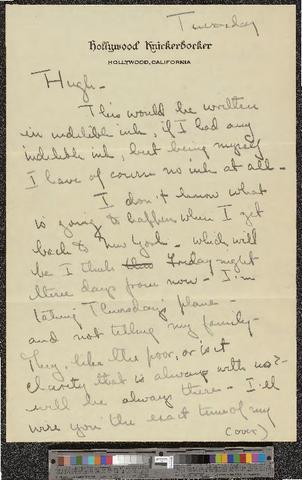 Tuesday
Hollywood Knickerbocker
HOLLYWOOD, CALIFORNIA
Hugh -
This would be written
in indelible ink, if I had any
indelible ink, but being myself
I have of course no ink at all -
I don't know what
is going to happen when I get
back to New York - which will
be I think this Friday night
three days from now - I'm
taking Thursday's plane -
and not telling my family -
They, like the poor, or is it
charity that is always with us? -
will be always there - I'll
wire you the exact time of my
(over)